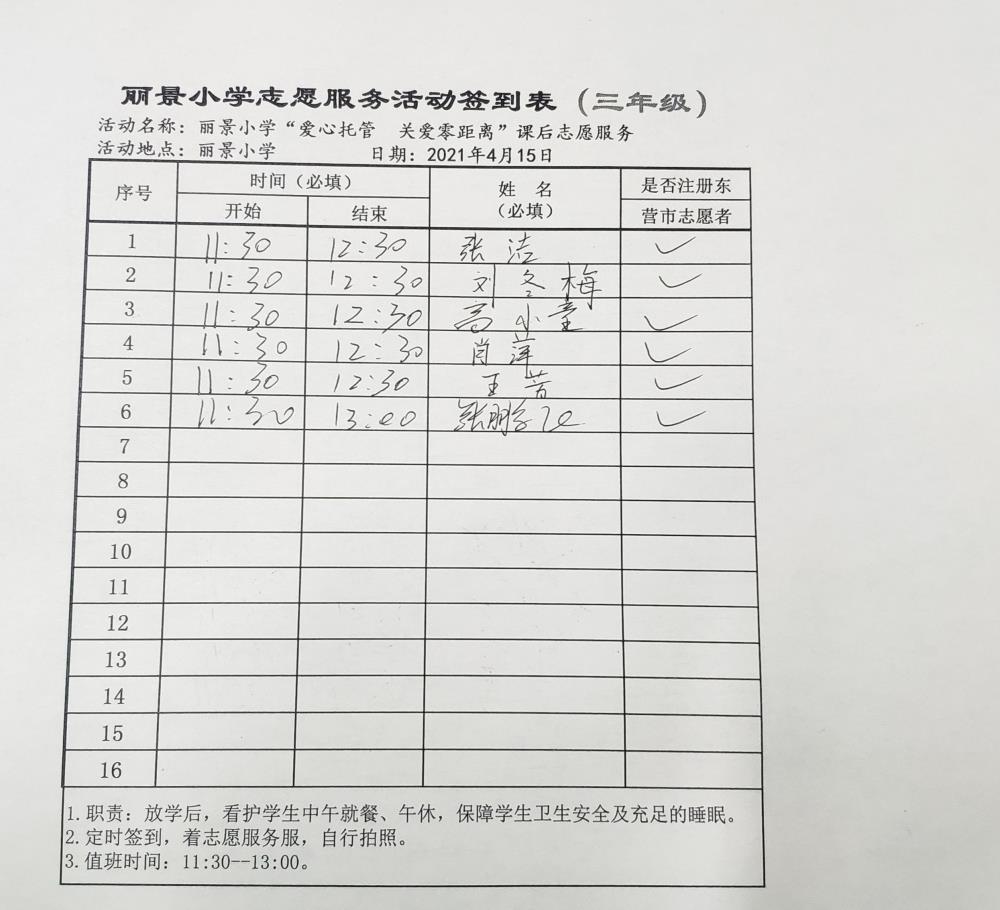 丽景小学志愿服务活动签到表（三年级）
活动名称：丽景小学“爱心托管　关爱零距离”课后志愿服务
活动地点：丽景小学　日期：2021年4月15日
序号 时间（必填） 姓 名（必填） 是否注册东营市志愿者
开始 结束
1 11:30 12:30 张洁 ✓
2 11:30 12:30 刘冬梅 ✓
3 11:30 12:30 高小童 ✓
4 11:30 12:30 肖萍 ✓
5 11:30 12:30 王 ✓
6 11:30 13:00 张朋 ✓
7
8
9
10
11
12
13
14
15
16
1.职责：放学后，看护学生中午就餐、午休，保障学生卫生安全及充足的睡眠。
2.定时签到，着志愿服务服，自行拍照。
3.值班时间：11:30--13:00。